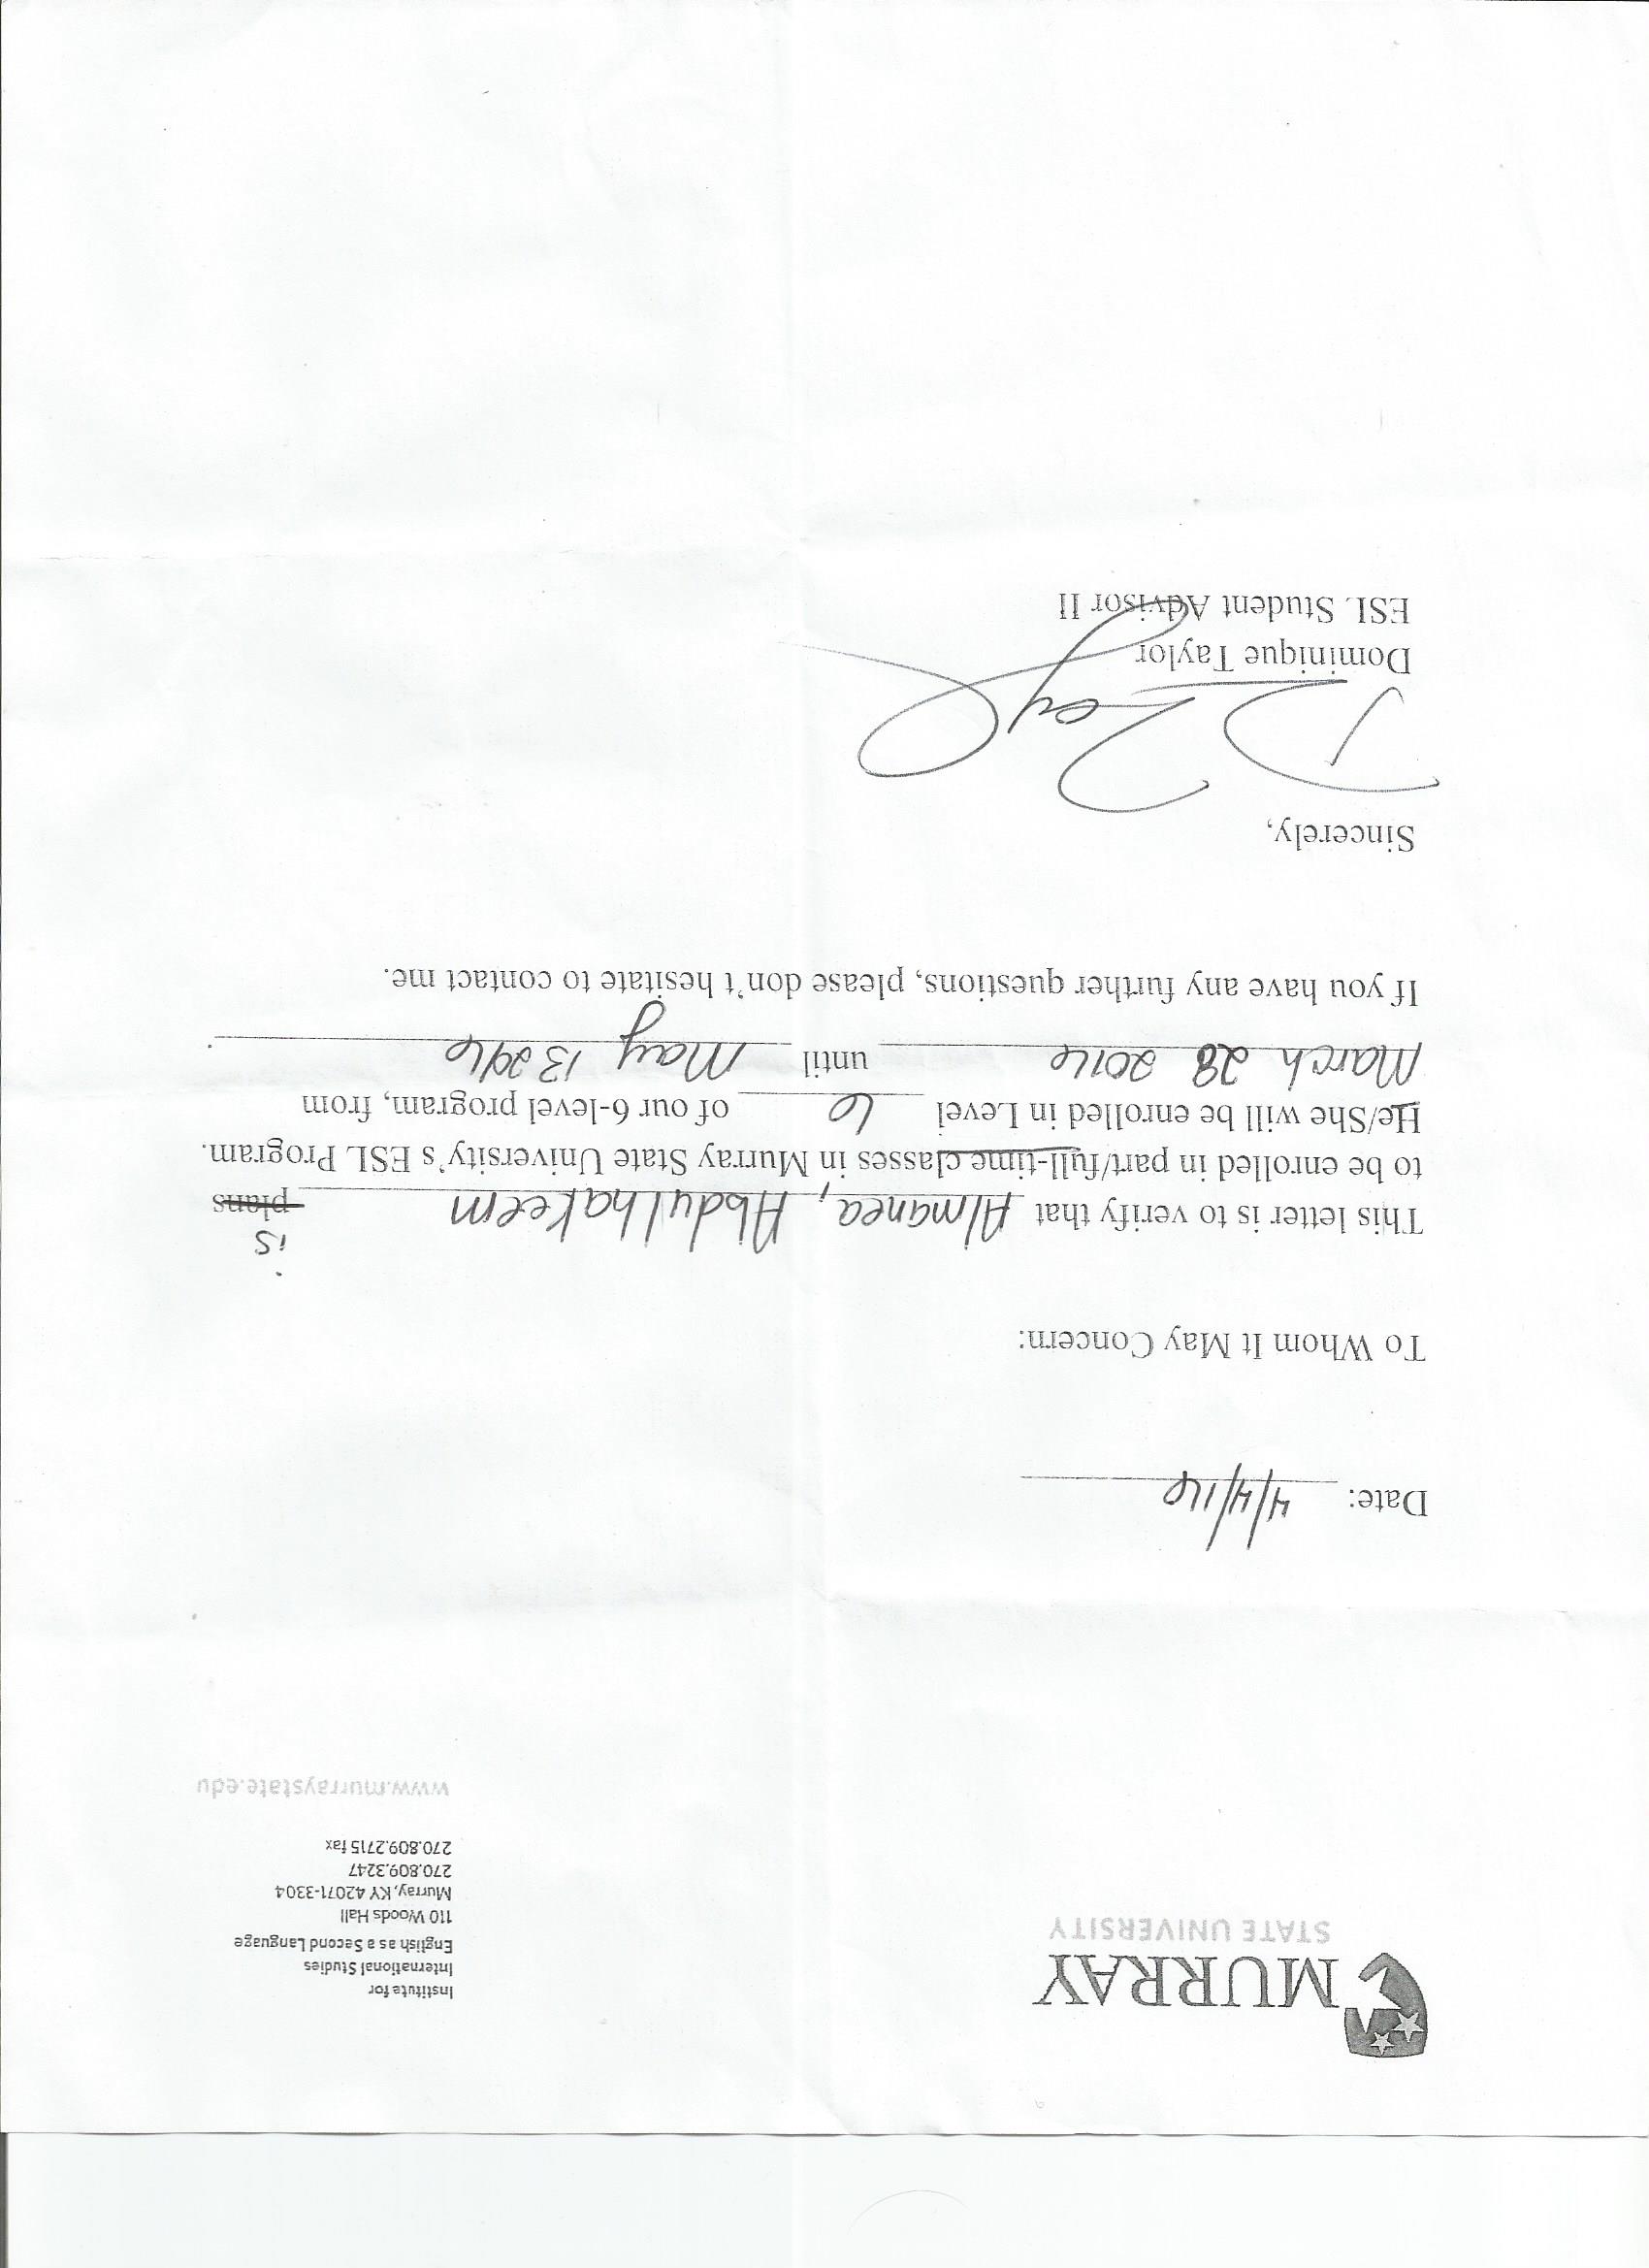 MURRAY
STATE UNIVERSITY
Institute for
International Studies
English as a Second Language
110 Woods Hall
Murray, KY 42071-3304
270.809.3247
270.809.2715 fax
www.murraystate.edu
Date: 4/4/16
To Whom It May Concern:
is
This letter is to verify that Almanea, Abdulhakeem plans
to be enrolled in part/full-time classes in Murray State University's ESL Program.
He/She will be enrolled in Level 6 of our 6-level program, from
March 28 2016 until May 13 2016.
If you have any further questions, please don't hesitate to contact me.
Sincerely,
Dominique Taylor
ESL Student Advisor II